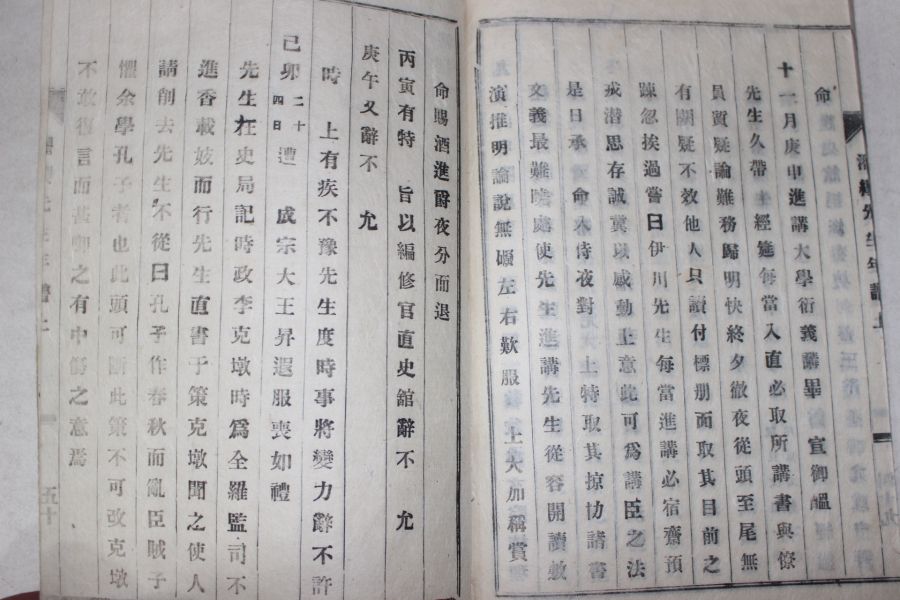 命
十一月庚申進講大學衍義講畢　宣御醞
先生久帶　經筵每當入直必取所講書與僚
員質疑論難務歸明快終夕徹夜從頭至尾無
有關疑不效他人只讀付標册面取其目前之
踈忽挨過嘗曰伊川先生每當進講必宿齋預
戒潛思存誠冀以感動上意此可爲講臣之法
是日承　命入侍夜對　上特取其掠協諸書
文義最難曉處使先生進講先生從容開讀敷
演推明論說無礙左右歎服　上大加稱賞
濯纓先生年譜上
命賜酒進爵夜分而退
丙寅有特　旨以編修官直史館辭不　允
庚午又辭不　允
時　上有疾不豫先生度時事將變力辭不許
己卯二十四日遭　成宗大王昇遐服喪如禮
先生在史局記時政李克墩時爲全羅監司不
進香載妓而行先生直書于策克墩聞之使人
請削去先生不從曰孔子作春秋而亂臣賊子
懼余學孔子者也此頭可斷此策不可改克墩
不敢復言而甚啣之有中傷之意焉
五十